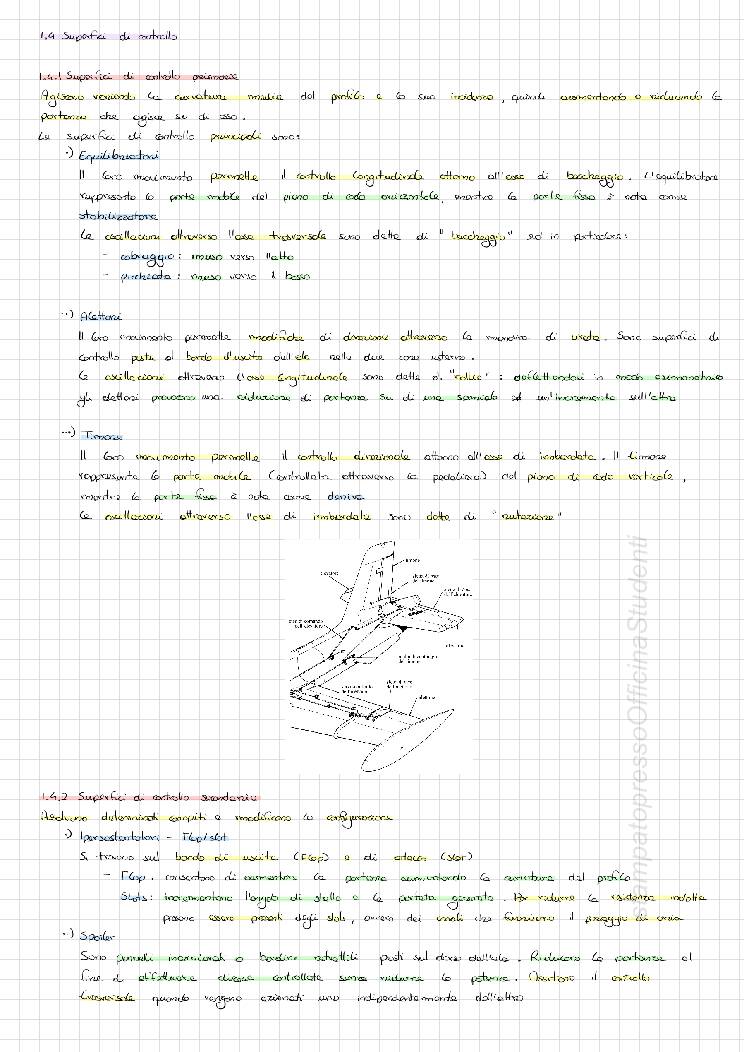 1.4 Superfici di controllo
1.4.1 Superfici di controllo primarie
Agiscono variando la curvatura media del profilo e la sua incidenza, quindi aumentando o riducendo la
portanza che agisce su di esso.
Le superfici di controllo principali sono:
·) Equilibratori
Il loro movimento permette il controllo longitudinale attorno all'asse di beccheggio. L'equilibratore
rappresenta la parte mobile del piano di coda orizzontale, mentre la parte fissa è nota come
stabilizzatore
Le oscillazioni attraverso l'asse trasversale sono dette di "beccheggio" ed in particolare:
- cabraggio: muso verso l'alto
- picchiata: muso verso il basso
··) Alettoni
Il loro movimento permette modifiche di direzione attraverso la manovra di virata. Sono superfici di
controllo poste al bordo d'uscita dell'ala nelle due zone esterne.
Le oscillazioni attraverso l'asse longitudinale sono dette di "rollio": deflettendosi in modo asimmetrico
gli alettoni provocano una riduzione di portanza su di una semiala ed un'incremento sull'altra
···) Timone
Il loro movimento permette il controllo direzionale attorno all'asse di imbardata. Il timone
rappresenta la parte mobile (controllata attraverso la pedaliera) del piano di coda verticale,
mentre la parte fissa è nota come deriva
Le oscillazioni attraverso l'asse di imbardata sono dette di "rotazione"
timone
elevatore
alettone
1.4.2 Superfici di controllo secondarie
Assolvono determinati compiti e modificano la configurazione
·) Ipersostentatori - Flap/slat
Si trovano sul bordo di uscita (Flap) o di attacco (slat)
- Flap: consentono di aumentare la portanza aumentando la curvatura del profilo
Slats: incrementano l'angolo di stallo e la portata generata. Per ridurre la resistenza indotta
possono essere presenti degli slots, ovvero dei canali che favoriscono il passaggio di aria
··) Spoiler
Sono pannelli incernierati o bordini retrattili posti sul dorso dell'ala. Riducono la portanza al
fine di effettuare discese controllate senza ridurre la potenza. Assistono il controllo
trasversale quando vengono azionati uno indipendentemente dall'altro
stampatopressoOfficinaStudenti